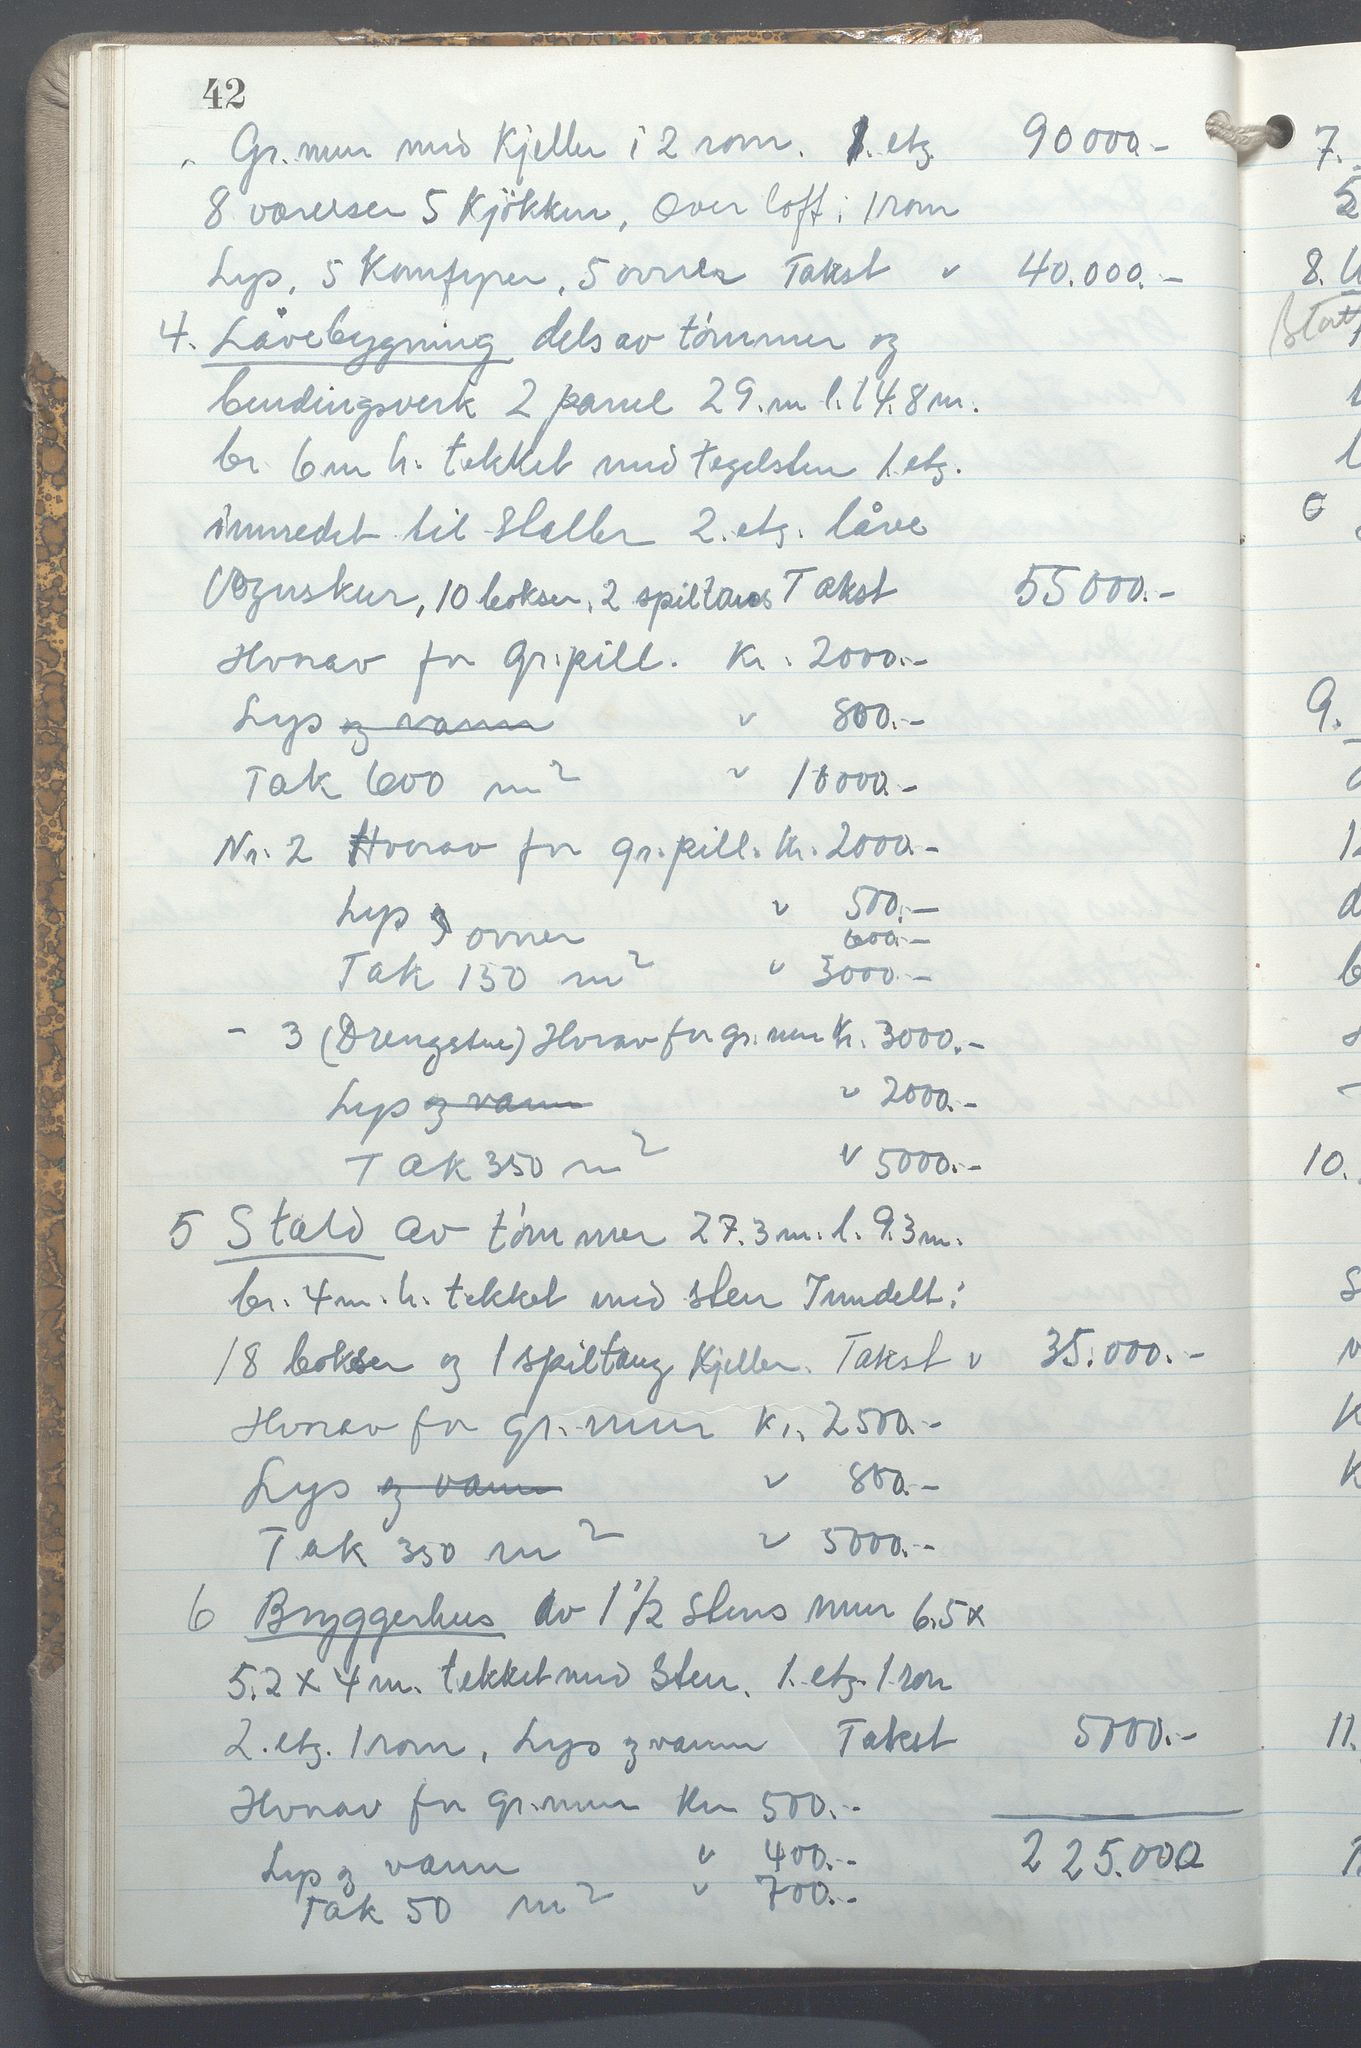 42
Gr. mur med Kjeller i 2 rom. 1. etg. 90000.-
8 værelser 5 Kjøkken, Over loft i 1 rom
Lys, 5 Komfyrer, 5 ovner Takst " 40.000.-
4. Låvebygning dels av tömmer og
bindingsverk 2 panel 29. m l. 14.8 m.
br. 6 m h. tekket med tegelsten 1. etg.
innredet til staller 2. etg. låve
Vognskur, 10 bokser, 2 spiltaug Takst 55000.-
Hvorav for gr. pill. Kr. 2000.-
Lys og vann " 800.-
Tak 600 m² " 10000.-
Nr. 2 Hvorav for gr. pill. Kr. 2000.-
Lys " 500.-
ovner 600.-
Tak 150 m² " 3000.-
- 3 (Drengstue) Hvorav for gr. mur Kr. 3000.-
Lys og vann " 2000.-
Tak 350 m² " 5000.-
5 Stald av tömmer 27.3 m. l. 9.3 m.
br. 4 m. h. tekket med sten Inndelt i
18 bokser og 1 spiltaug Kjeller. Takst " 35.000.-
Hvorav for gr. mur Kr. 2500.-
Lys og vann " 800.-
Tak 350 m² " 5000.-
6 Bryggerhus av 1 1/2 stens mur 6.5 x
5.2 x 4 m. tekket med sten. 1. etg. 1 rom
2. etg. 1 rom, Lys og vann Takst 5000.-
Hvorav for gr. mur Kr 500.-
Lys og vann " 400.- 225.000
Tak 50 m² " 700.-
7.
5
8.
9.
10.
11.